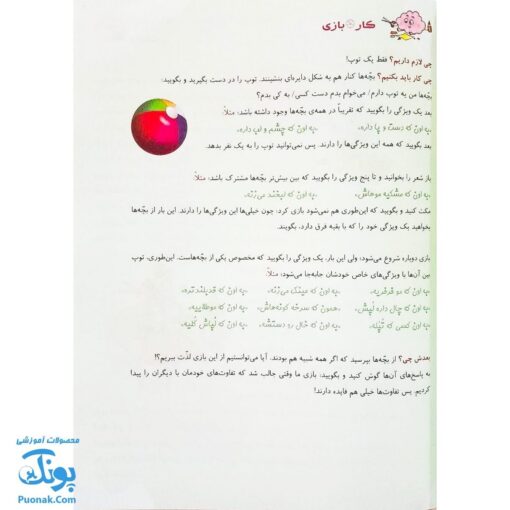 کار بازی
چی لازم داریم؟ فقط یک توپ!
چی کار باید بکنیم؟ بچّه‌ها کنار هم به شکل دایره‌ای بنشینند. توپ را در دست بگیرید و بگویید:
بچّه‌ها من یه توپ دارم/ می‌خوام بدم دست کسی/ به کی بدم؟
بعد یک ویژگی را بگویید که تقریباً در همه‌ی بچّه‌ها وجود داشته باشد؛ مثلاً:
به اون که دست و پا داره، به اون که چشم و لب داره.
بعد بگویید که همه این ویژگی‌ها را دارند. پس نمی‌توانید توپ را به یک نفر بدهد.
باز شعر را بخوانید و تا پنج ویژگی را بگویید که بین بیش‌تر بچّه‌ها مشترک باشد؛ مثلاً:
به اون که مشکیه موهاش، به اون که لبخند می‌زنه.
مکث کنید و بگویید که این‌طوری هم نمی‌شود بازی کرد؛ چون خیلی‌ها این ویژگی‌ها را دارند. این بار از بچّه‌ها
بخواهید یک ویژگی خود را که با بقیه فرق دارد، بگویند.
بازی دوباره شروع می‌شود؛ ولی این بار، یک ویژگی را بگویید که مخصوص یکی از بچّه‌هاست. این‌طوری، توپ
بین آن‌ها با ویژگی‌های خاص خودشان جابه‌جا می‌شود؛ مثلاً:
به اون که مو فرفریه، به اون که عینک می‌زنه، به اون که قدبلندتره،
به اون که چال داره لُپش، همون که سرخه گونه‌هاش، به اون که موطلاییه،
به اون کسی که تپله، به اون که خال رو دستشه، به اون که لُپاش گُلیه.
بعدش چی؟ از بچّه‌ها بپرسید که اگر همه شبیه هم بودند، آیا می‌توانستیم از این بازی لذّت ببریم؟!
به پاسخ‌های آن‌ها گوش کنید و بگویید: بازی ما وقتی جالب شد که تفاوت‌های خودمان با دیگران را پیدا
کردیم. پس تفاوت‌ها خیلی هم فایده دارند!
محصولات آموزشی
پونک
Puonak.Com